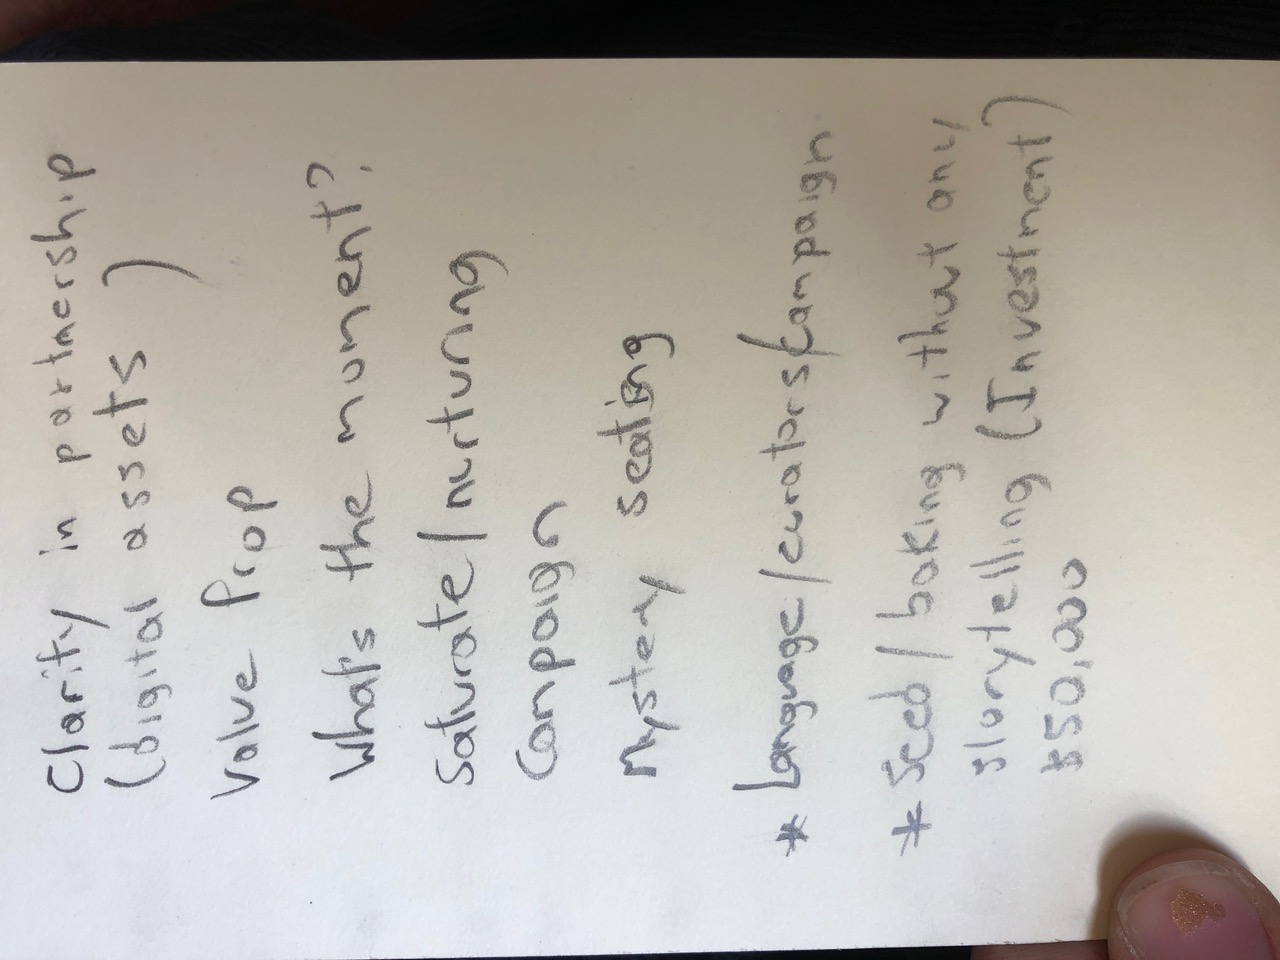 Clarify in partnership
(Digital assets)
Value Prop
What's the moment?
Saturate/nurturing
Campaign
Mystery seating
* Language/curators/campaign
* Seed/baking without any
storytelling (Investment)
$50,000